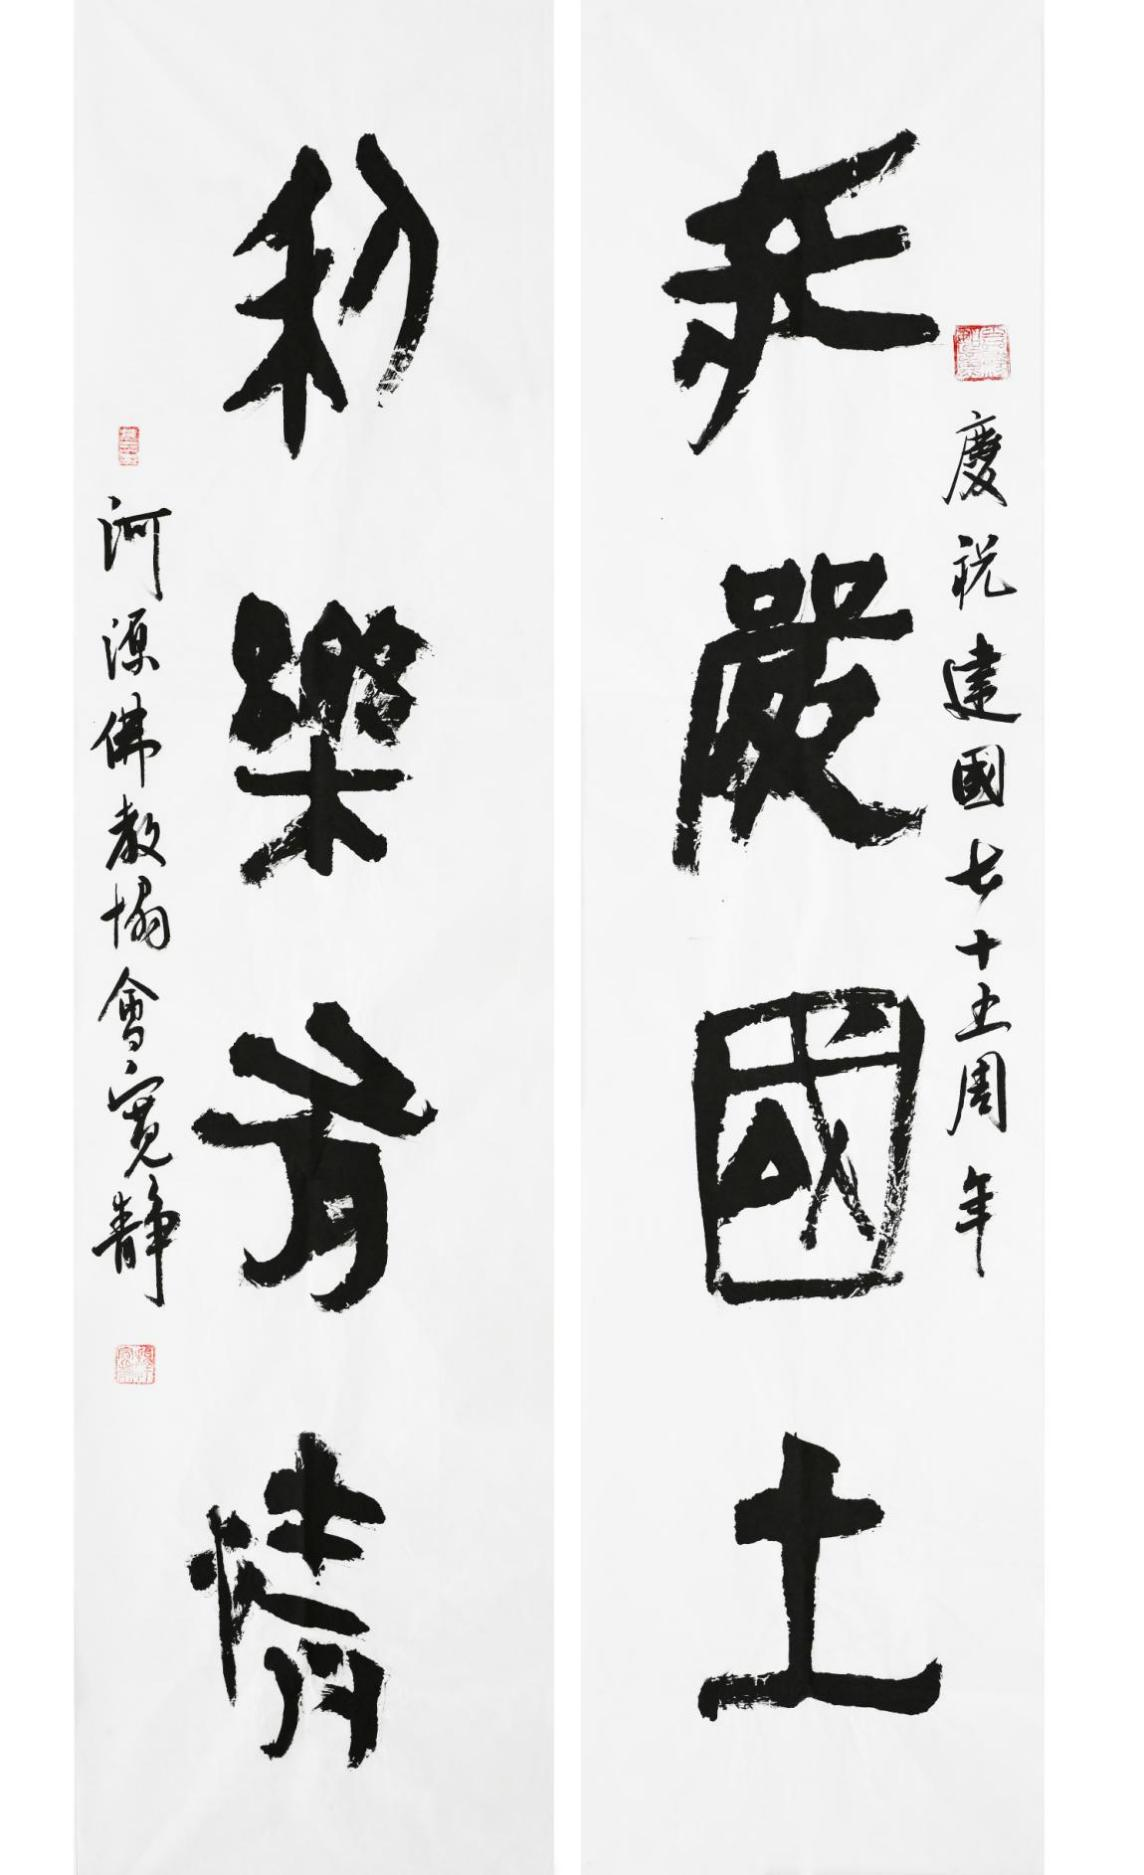 慶祝建國七十五周年
莊嚴國土
利樂有情
河源佛教協會寬靜